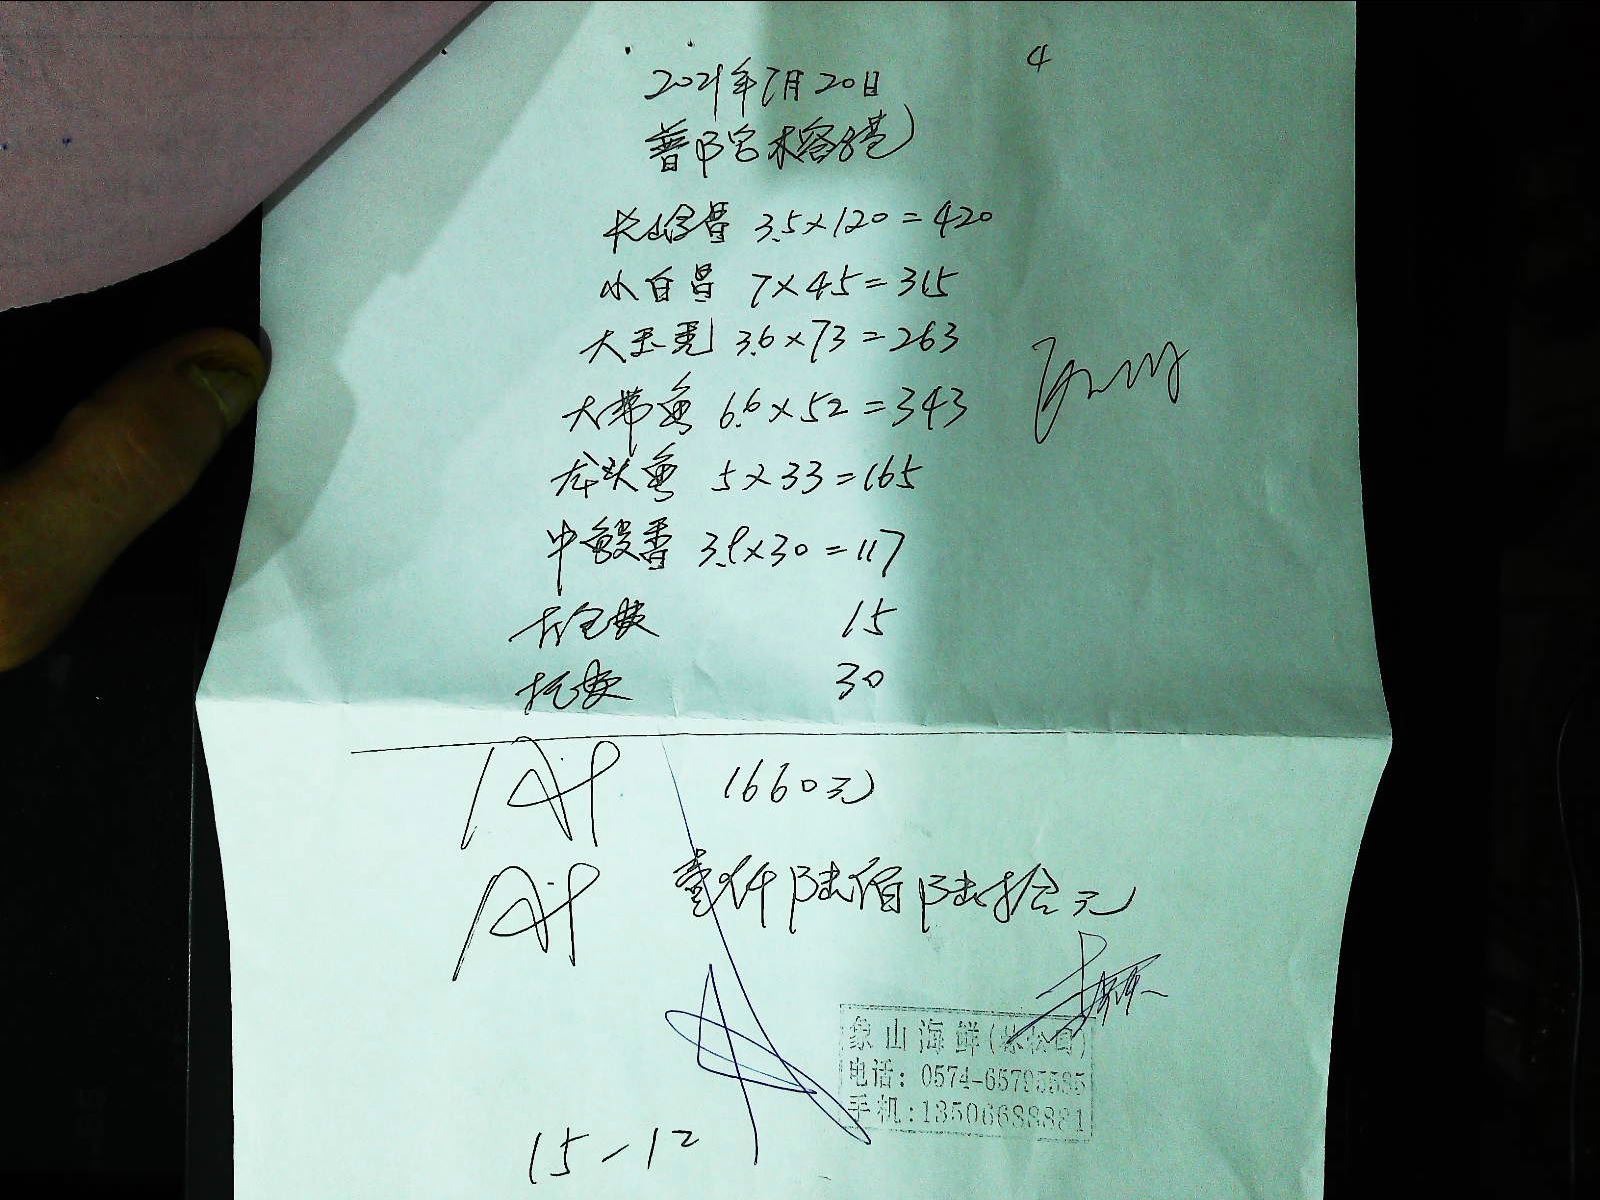 4
2021年7月20日
3.5×120=420
小白昌 7×45=315
大玉秃 3.6×73=263
大带鱼 6.6×52=343
龙头鱼 5×33=165
中 3.9×30=117
包 15
托费 30
1660元
壹仟陆佰陆拾元
象山海鲜
电话: 0574-65795585
手机:13506688881
15-12